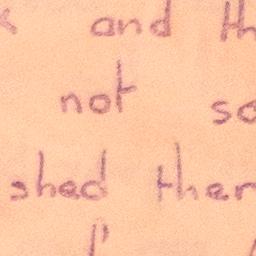 and th
not so
shed ther